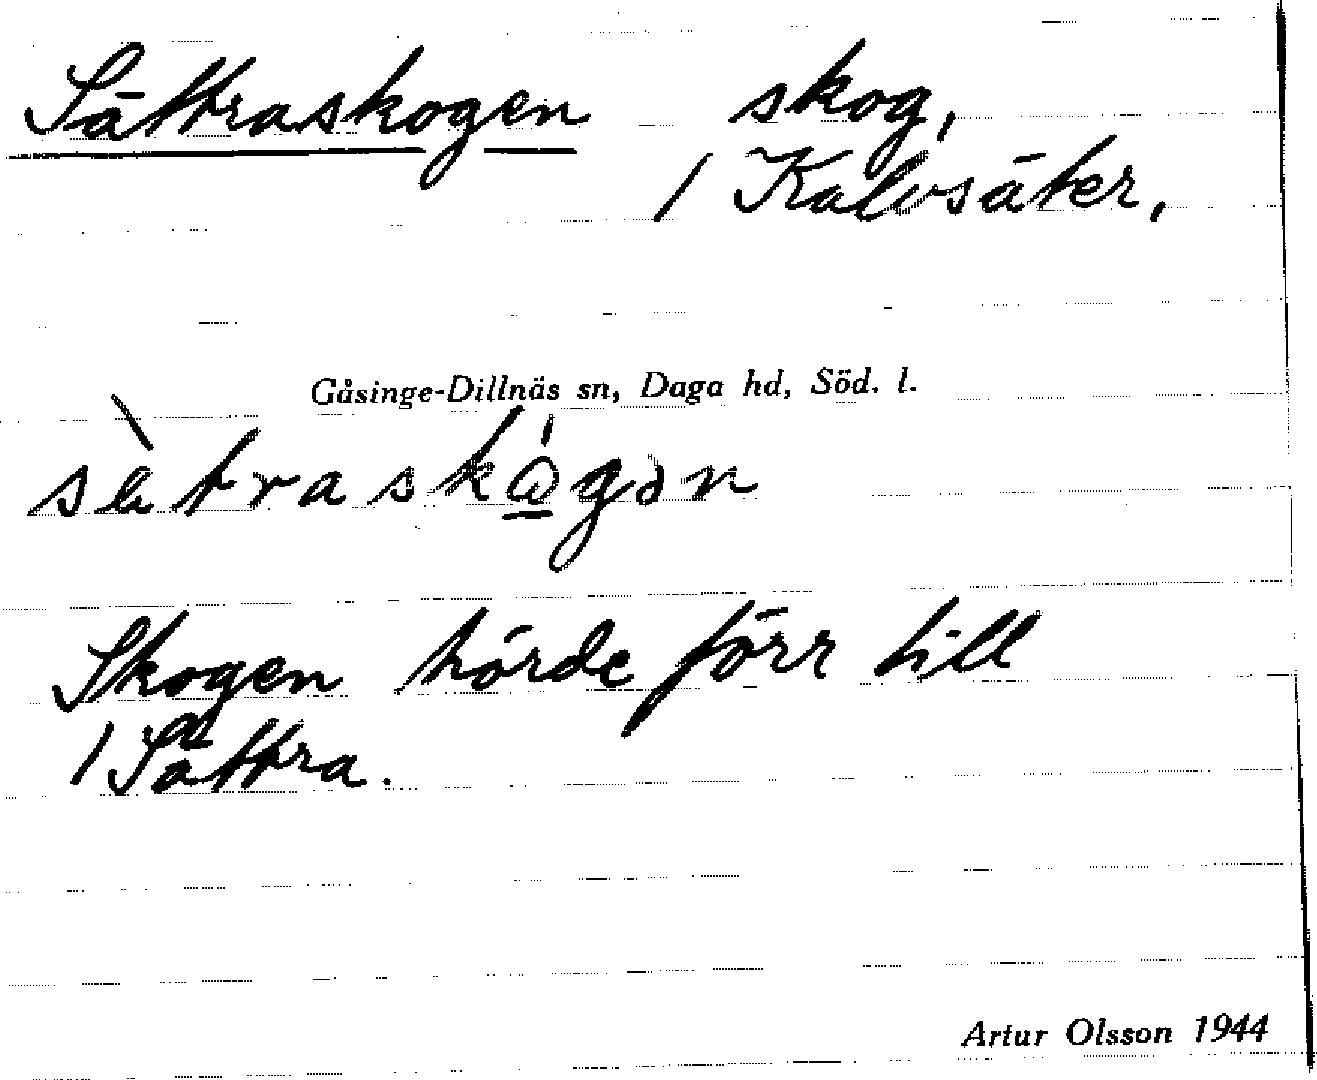 Sättraskogen skog,
/ Kalvsäter,
Gåsinge-Dillnäs sn, Daga hd, Söd. l.
Skogen hörde förr till
/ Sättra.
Artur Olsson 1944